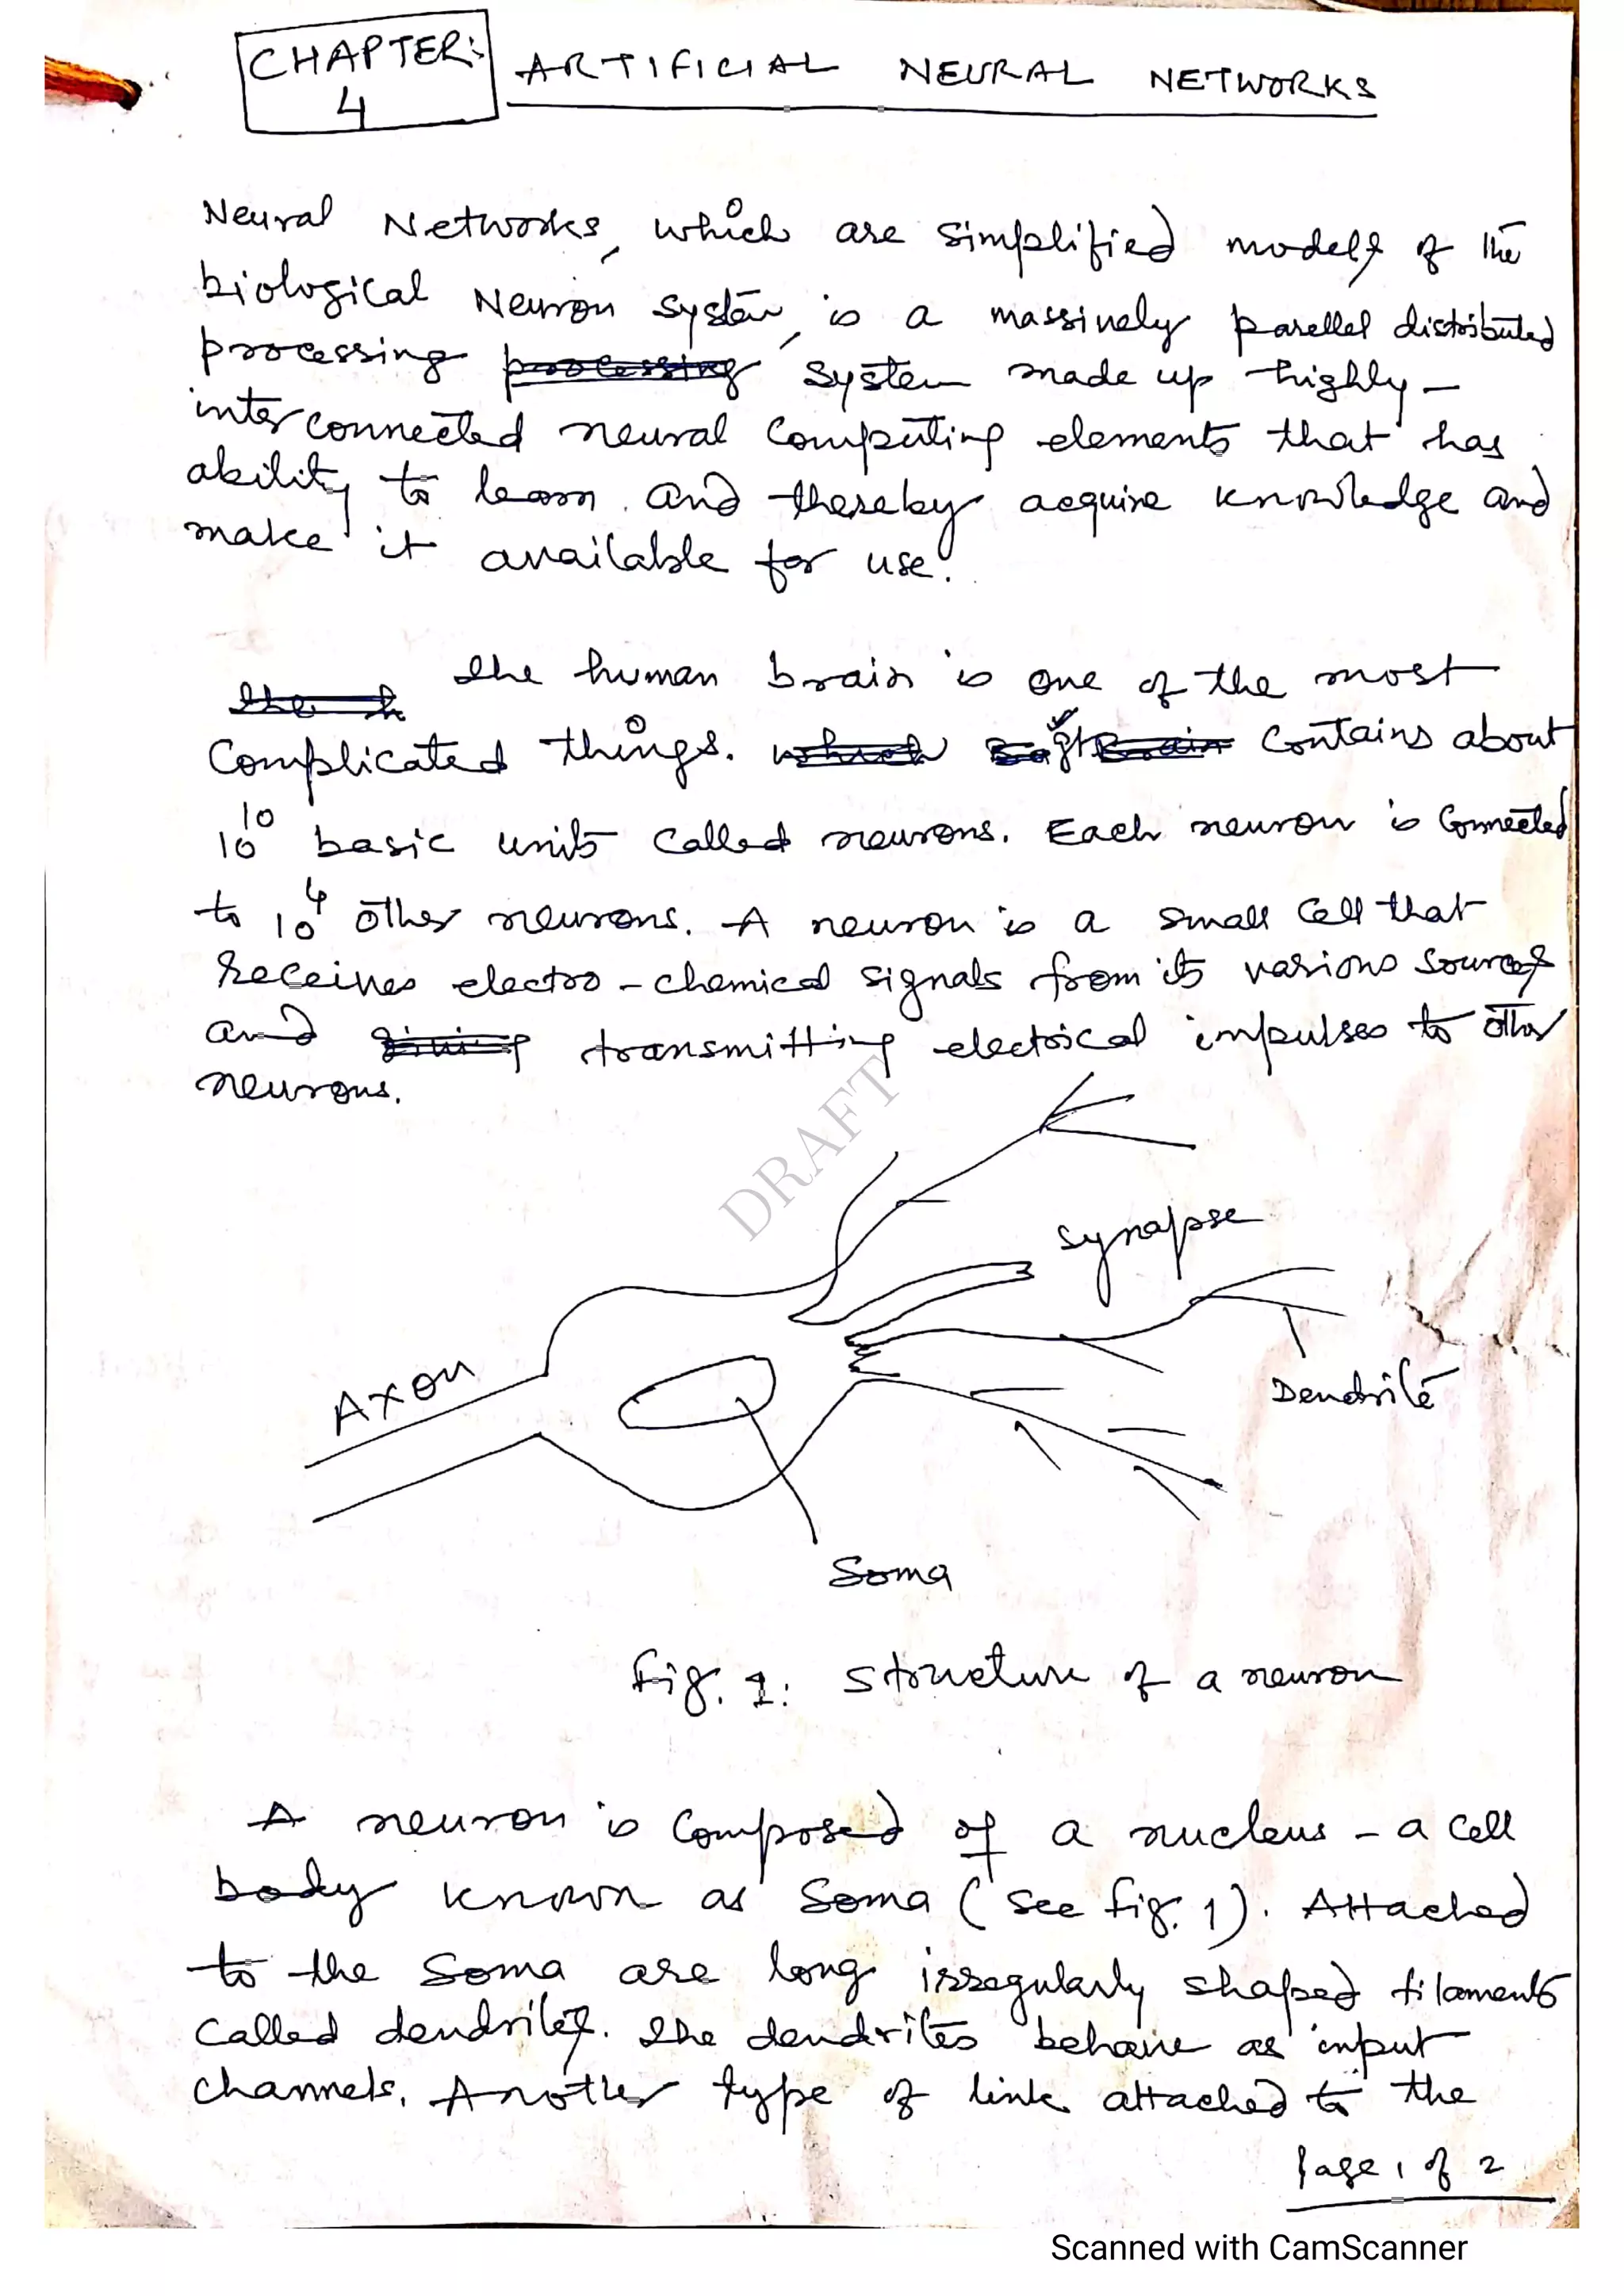 CHAPTER:
4
ARTIFICIAL NEURAL NETWORKS
Neural Networks, which are simplified models of the
biological Neuron system, is a massively parellel distributed
processing processing system made up highly-
interconnected neural computing elements that has
ability to learn and thereby acquire knowledge and
make it available for use.
The h The human brain is one of the most
complicated things. which It Brain contains about
10^10 basic units called neurons. Each neuron is connected
to 10^4 other neurons. A neuron is a small cell that
receives electro-chemical signals from its various sources
and giving transmitting electrical impulses to other
neurons.
DRAFT
Synapse
Axon
Dendrite
Soma
Fig. 1: Structure of a neuron
A neuron is composed of a nucleus - a cell
body known as soma (see fig. 1). Attached
to the soma are long irregularly shaped filaments
called dendrites. The dendrites behave as input
channels. Another type of link attached to the
Page 1 of 2
Scanned with CamScanner